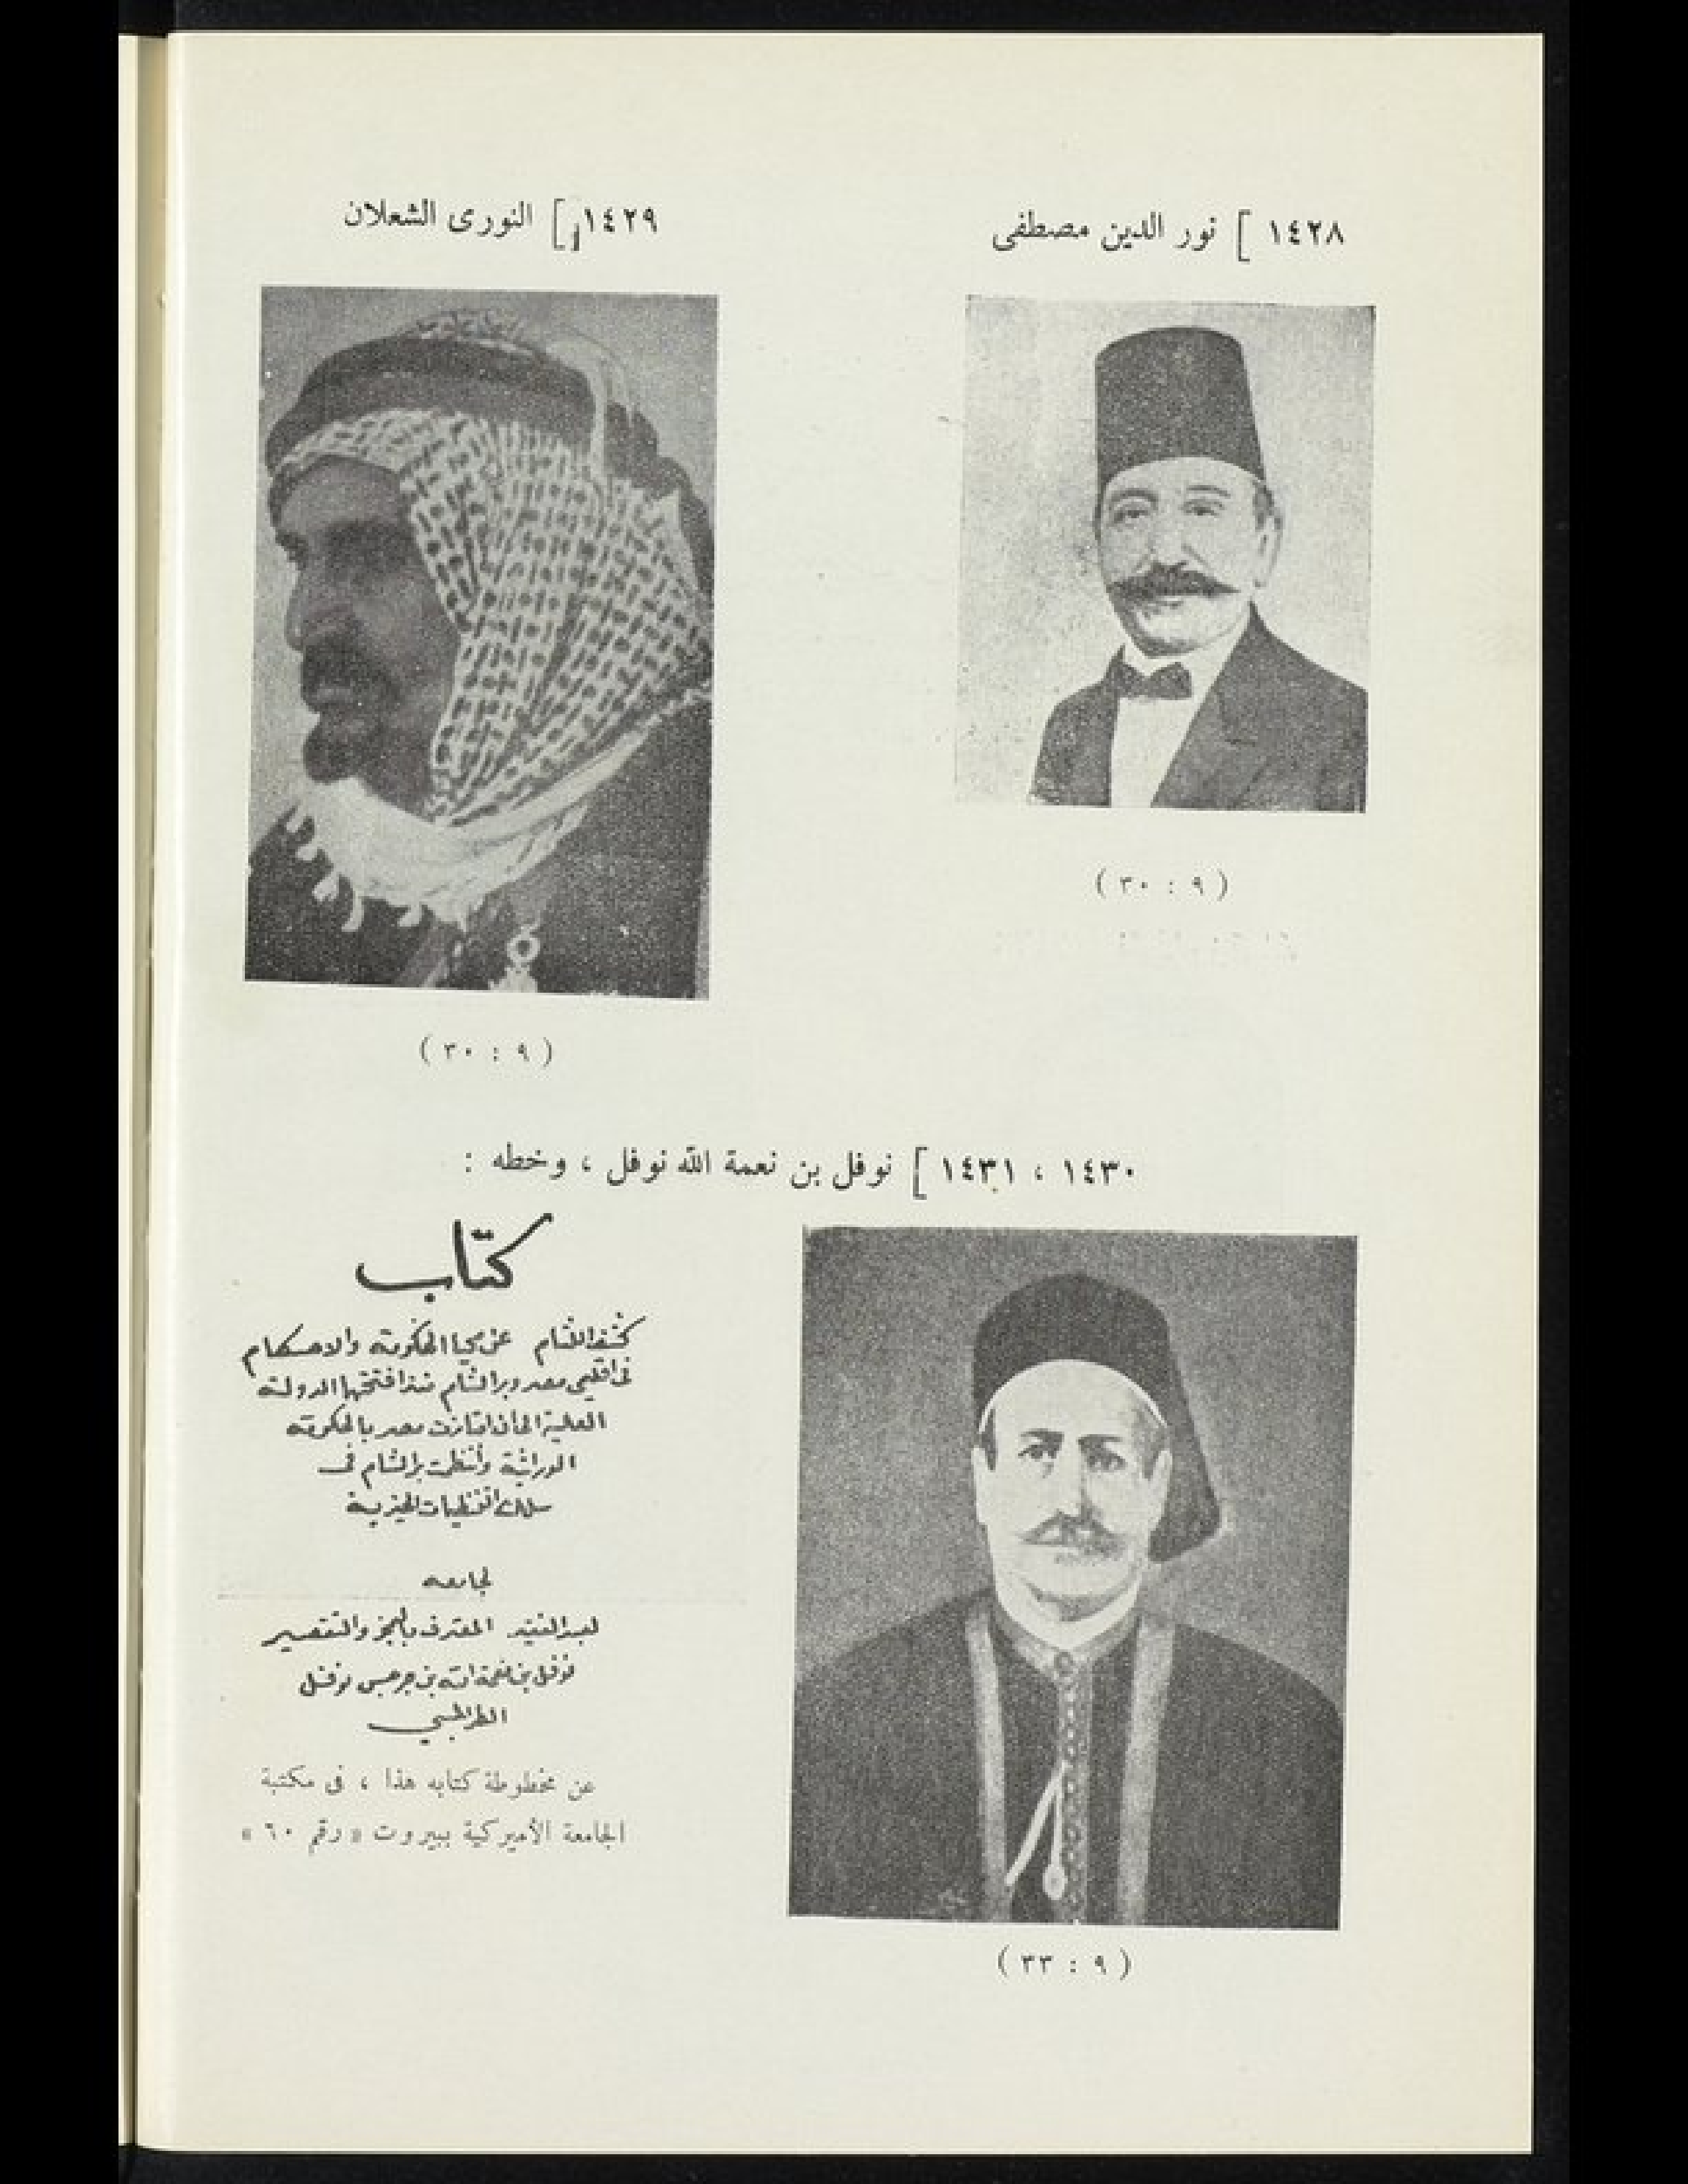 ١٤٢٨ [ نور الدين مصطفى
( ٩ : ٣٠ )
١٤٢٩ [ النورى الشعلان
( ٩ : ٣٠ )
١٤٣٠ ، ١٤٣١ [ نوفل بن نعمة الله نوفل ، وخطه :
( ٩ : ٣٣ )
كتاب
كشف اللثام عن محيا الحكومة والاحكام
فى اقليمى مصر وبر الشام منذ افتتحها الدولة
العلية الى أن امتازت مصر بالحكومة
الوراثية وأنتظمت بر الشام فى
سلك التنظيمات الخيرية
لجامعه
لعبد الفقير المعترف بالعجز والتقصير
نوفل بن نعمة الله بن جرجس نوفل
الطرابلسي
عن مخطوطة كتابه هذا ، فى مكتبة
الجامعة الأميركية ببيروت « رقم ٦٠ »